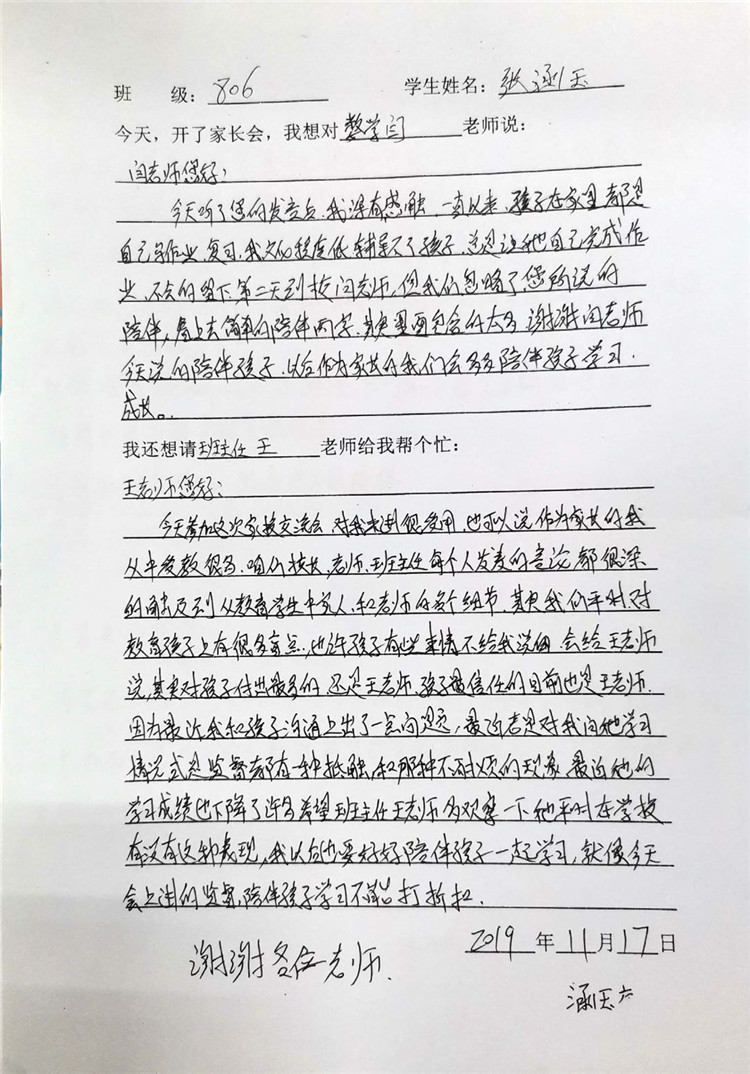 班 级：806 学生姓名：张涵玉
今天，开了家长会，我想对数学闫老师说：
闫老师您好：
今天听了您的发言后,我深有感触,一直以来,孩子在家里都是
自己写作业,复习,我文化程度低,辅导不了孩子,总是让他自己完成作
业,不会的留下,第二天到校问老师,但我们忽略了您所说的
陪伴,看上去简单的陪伴两字,其实里面包含的太多,谢谢闫老师
今天说的陪伴孩子,以后作为家长的我们会多多陪伴孩子学习.
成长。
我还想请班主任王老师给我帮个忙：
王老师您好：
今天参加这次家校交流会,对我来讲很受用,也可以说作为家长的我
从中受教很多,咱们校长,老师,班主任每个人发表的言论都很深
的触及到从教育学生中家人,和老师的各个细节,其实我们平时对
教育孩子上有很多盲点,也许孩子有些事情不给我说但会给王老师
说,其实对孩子付出最多的还是王老师,孩子最信任的目前也是王老师.
因为最近我和孩子沟通上出了一点问题,最近老是对我问他学习
情况或是监督都有一种抵触,和那种不耐烦的现象,最近他的
学习成绩也下降了许多希望班主任王老师多观察一下他平时在学校
有没有这种表现,我以后也要好好陪伴孩子一起学习,就像今天
会上讲的监督,陪伴孩子学习不能打折扣.
谢谢各位老师.
2019年11月17日
涵玉